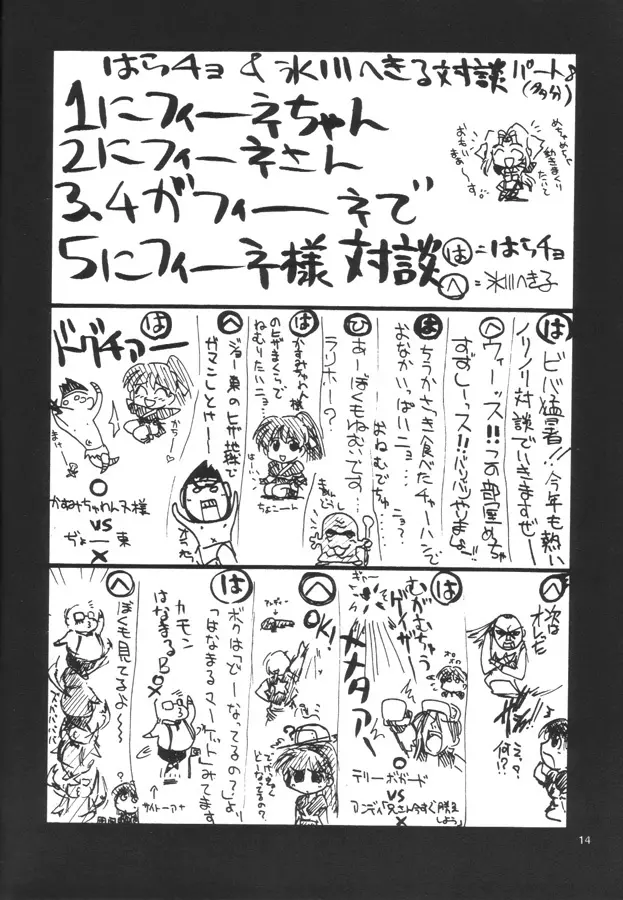 はらチョ & 氷川へきる対談パート8
(多分)
1にフィーネちゃん
2にフィーネさん
3、4がフィーネで
5にフィーネ様 対談
めちゃめちゃ
動きまくり
たいて
おもい
まぁ〜す。
は=はらチョ
へ=氷川へき子
は ビバ猛暑!!今年も熱い
ノリノリ対談でいきますぜー
へ ウィーッス!!この部屋めちゃ
すずしーッス!!バリバリやりまょ。
は ちうかさっき食べたチャーハンで
おなかいっぱいニョ…
おねむでちゅ… ニョ?
ひ あーぼくもねむいです…
ラリホー?
は かすみちゃん様
のヒザまくらで
ねむりたいニョ…
ちょこーん
へ ジョー東のヒザ地獄で
ガマンしとけやー
は ドグチァー
かち♡
まけ
○
かすみちゃん様
VS
ぢょー東
×
へ 次は
オレだ
えっ?
何!?
は むがむちゅう
ゲイザー
ギャー
メメタァー
○
テリーボガード
VS
アンディ「兄さん今すぐ脱出しよう」
×
へ OK!
で けっきょく
どーなってるの?
は ボクは「どーなってるの?」より
「はなまるマーケット」みてます
カモン
はなまるB○×
↑
サイトーアナ
へ ぼくも見てるよ〜〜
14